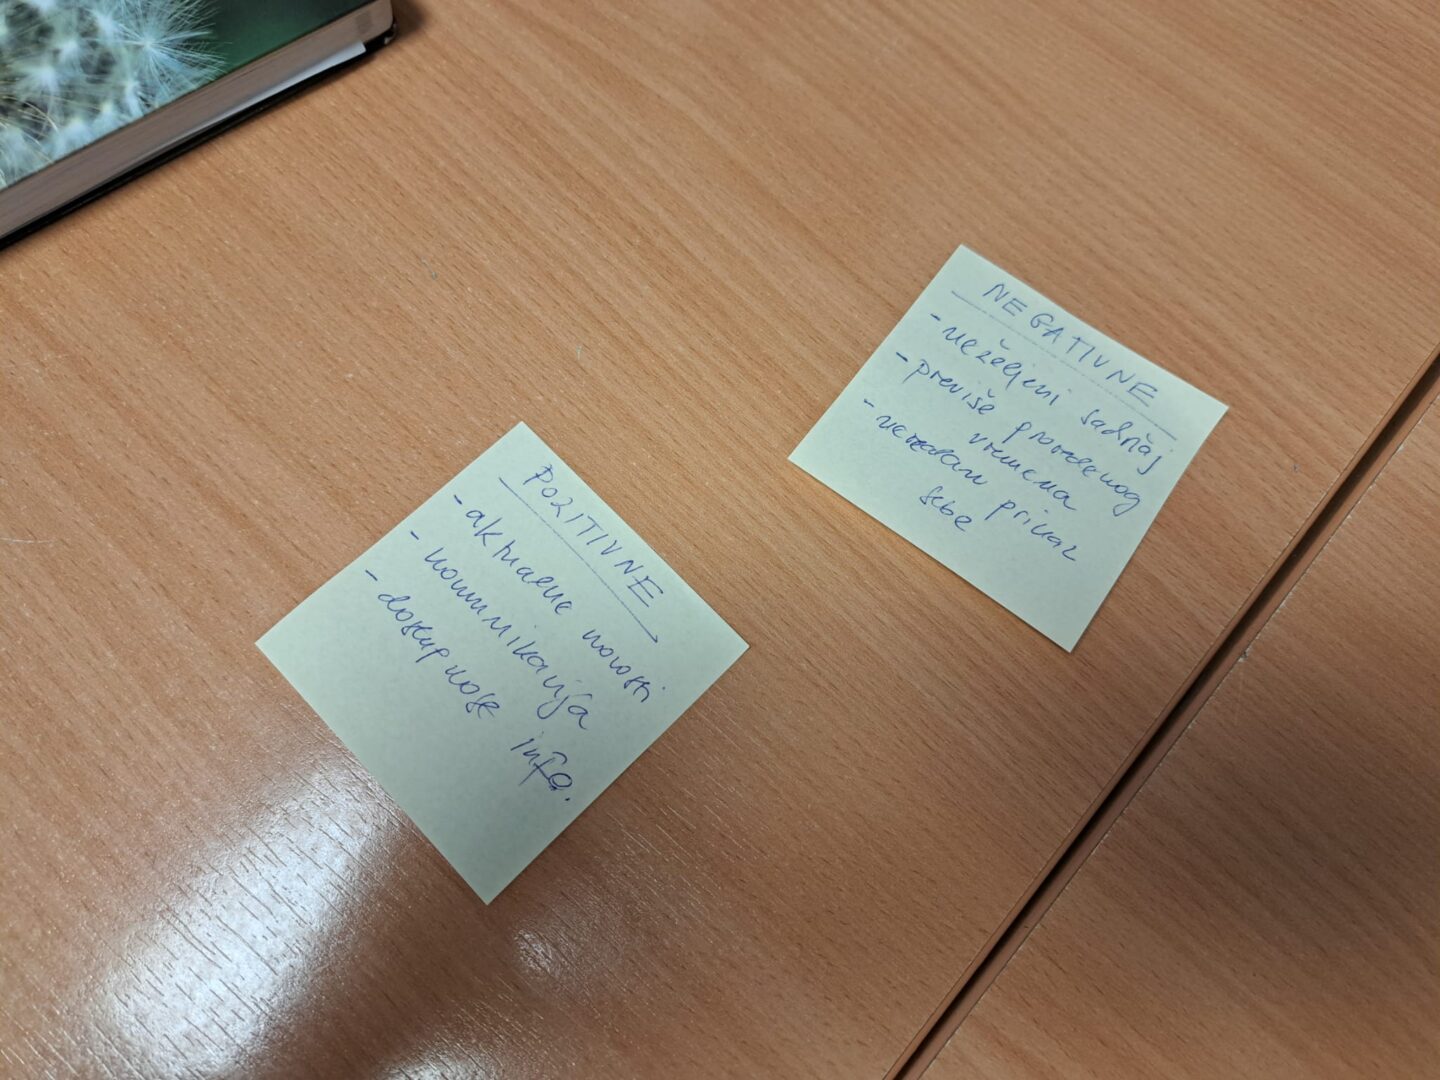 POZITIVNE
- aktualne novosti
- komunikacija
- dostupnost
info.
NEGATIVNE
- neželjeni sadržaj
- previše provedenog
vremena
- nerealan prikaz
sebe